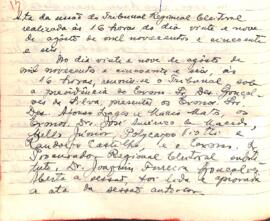 Ata da sessão do Tribunal Regional Eleitoral
realizada às 16 horas do dia vinte e nove
de agôsto de mil novecentos e cincoenta
e seis.
No dia vinte e nove de agôsto de
mil novecentos e cincoenta e seis, às
16 horas, reuniu-se o Tribunal, sob
a presidência do Exmo. Sr. Des. Gonçalves
da Silva, presentes os Exmos. Srs.
Des. Afonso Lages e Marcio Mata, os
Exmos. Drs. José Américo de Macedo,
Mello Júnior, Polycarpo Viotti e
Landulfo Castilho, e o Exmo. Sr.
Procurador Regional Eleitoral substituto,
Dr. Joaquim Ferreira Gonçalves.
Aberta a sessão, foi lida e aprovada
a ata da sessão anterior.